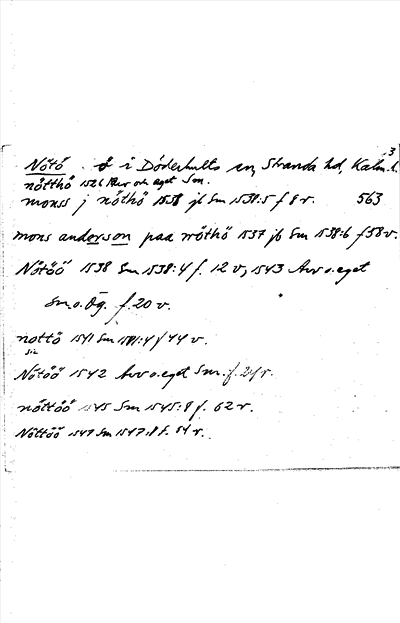 3
Nötö ö i Döderhults sn, Stranda hd, Kalm. l.
nötthö 1526 Arv och eget Sm.
monss j nöthö 1538 jb Sm 1538:5 f 8 r. 563
mons anderson paa nöthö 1537 jb Sm 1538:6 f 58 v.
Nötöö 1538 Sm 1538:4 f. 12 v; 1543 Arv o. eget
Sm o. Ög. f. 20 v.
nottö 1541 Sm 1541:4 f 44 v.
sic
Nötöö 1542 Arv o. eget Sm. f. 24 r.
nöttöö 1545 Sm 1545:8 f. 62 r.
Nöttöö 1547 Sm 1547:8 f. 54 r.